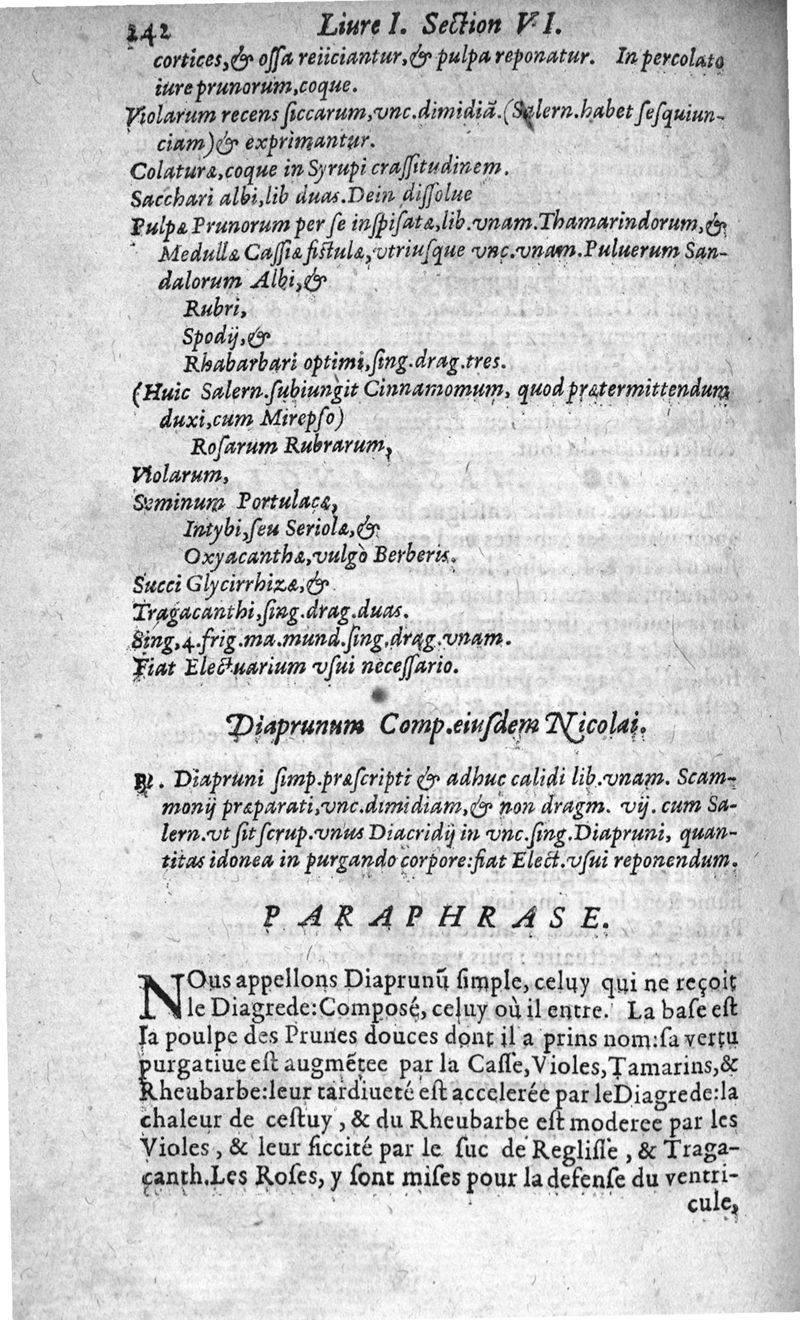 242 Liure I. Section VI.
cortices,& ossa reiiciantur,& pulpa reponatur. In percolato
iure prunorum,coque.
Violarum recens siccarum,vnc.dimidiã.(Salern.habet sesquiun-
ciam)& exprimantur.
Colaturæ,coque in Syrupi crassitudinem.
Sacchari albi,lib duas.Dein dissolue
Pulpæ Prunorum per se inspisatæ,lib.vnam.Thamarindorum,&
Medullæ Cassiæ fistulæ,vtriusque vnc.vnam.Puluerum San-
dalorum Albi,&
Rubri,
Spodij,&
Rhabarbari optimi,sing.drag.tres.
(Huic Salern.subiungit Cinnamomum, quod prætermittendum
duxi,cum Mirepso)
Rosarum Rubrarum,
Violarum,
Seminum Portulacæ,
Intybi,seu Seriolæ,&
Oxyacanthæ,vulgò Berberis.
Succi Glycirrhizæ,&
Tragacanthi,sing.drag.duas.
Sing,4.frig.ma.mund.sing.drag.vnam.
Fiat Electuarium vsui necessario.
Diaprunum Comp.eiusdem Nicolai.
℞. Diapruni simp.præscripti & adhuc calidi lib.vnam. Scam-
monij præparati,vnc.dimidiam,& non dragm. vij. cum Sa-
lern.vt sit scrup.vnus Diacridij in vnc.sing.Diapruni, quan-
titas idonea in purgando corpore:fiat Elect.vsui reponendum.
PARAPHRASE.
NOus appellons Diaprunũ simple, celuy qui ne reçoit
le Diagrede:Composé, celuy où il entre. La base est
la poulpe des Prunes douces dont il a prins nom:sa vertu
purgatiue est augmẽtee par la Casse,Violes,Tamarins,&
Rheubarbe:leur tardiueté est accelerée par leDiagrede:la
chaleur de cestuy , & du Rheubarbe est moderee par les
Violes , & leur siccité par le suc de Reglisse , & Traga-
çanth.Les Roses, y sont mises pour la defense du ventri-
cule,